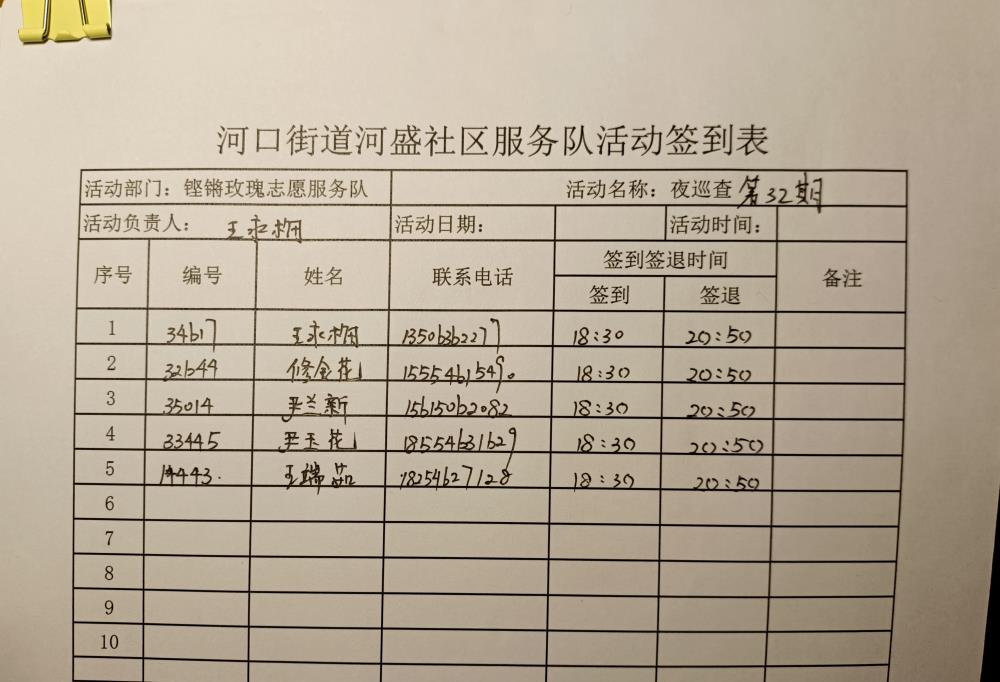 河口街道河盛社区服务队活动签到表
活动部门：铿锵玫瑰志愿服务队 活动名称：夜巡查 第32期
活动负责人： 王永栩 活动日期： 活动时间：
序号 编号 姓名 联系电话 签到签退时间 备注
签到 签退
1 34617 王永栩 13506362277 18:30 20:50
2 32644 修金花 15554615490 18:30 20:50
3 35014 尹兰新 15615062082 18:30 20:50
4 33445 尹玉花 18554631629 18:30 20:50
5 14443. 王瑞茹 18254627128 18:30 20:50
6
7
8
9
10